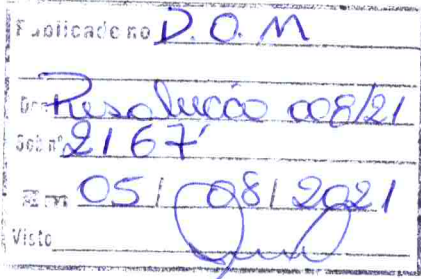 Publicado no D.O.M
Resolução 008/21
Sob nº 2167
Em 05/08/2021
Visto